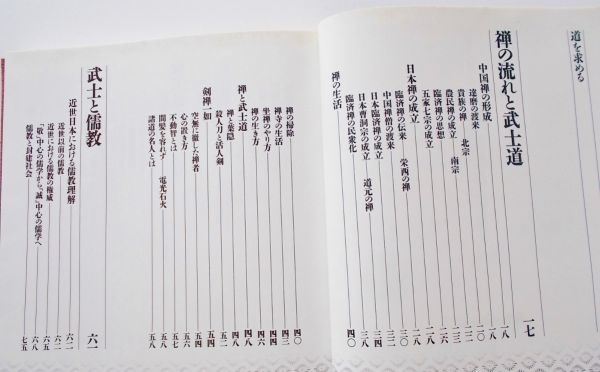 道を求める
禅の流れと武士道 一七
中国禅の形成 一八
達磨の渡来 一八
貴族の禅 北宗 二〇
農民禅の成立 南宗
臨済禅の思想
五家七宗の成立
日本禅の成立 三〇
臨済禅の伝来 栄西の禅
中国禅僧の渡来
日本臨済禅の成立
日本曹洞宗の成立 道元の禅
臨済禅の民衆化 三八
禅の生活 四〇
禅の掃除 四〇
禅寺の生活 四三
坐禅のやり方 四四
禅の生き方 四六
禅と武士道 四八
禅と葉隠 四八
殺人刀と活人剣 五二
剣禅一如 五四
空無に徹した禅者 五四
心の置き方 五五
不動智とは 五七
間髪を容れず 電光石火
諸道の名人とは 五八
武士と儒教 六一
近世日本における儒教理解 六二
近世以前の儒教 六二
近世における儒教の権威 六五
「敬」中心の儒学から「誠」中心の儒学へ 六八
儒教と封建社会 七五